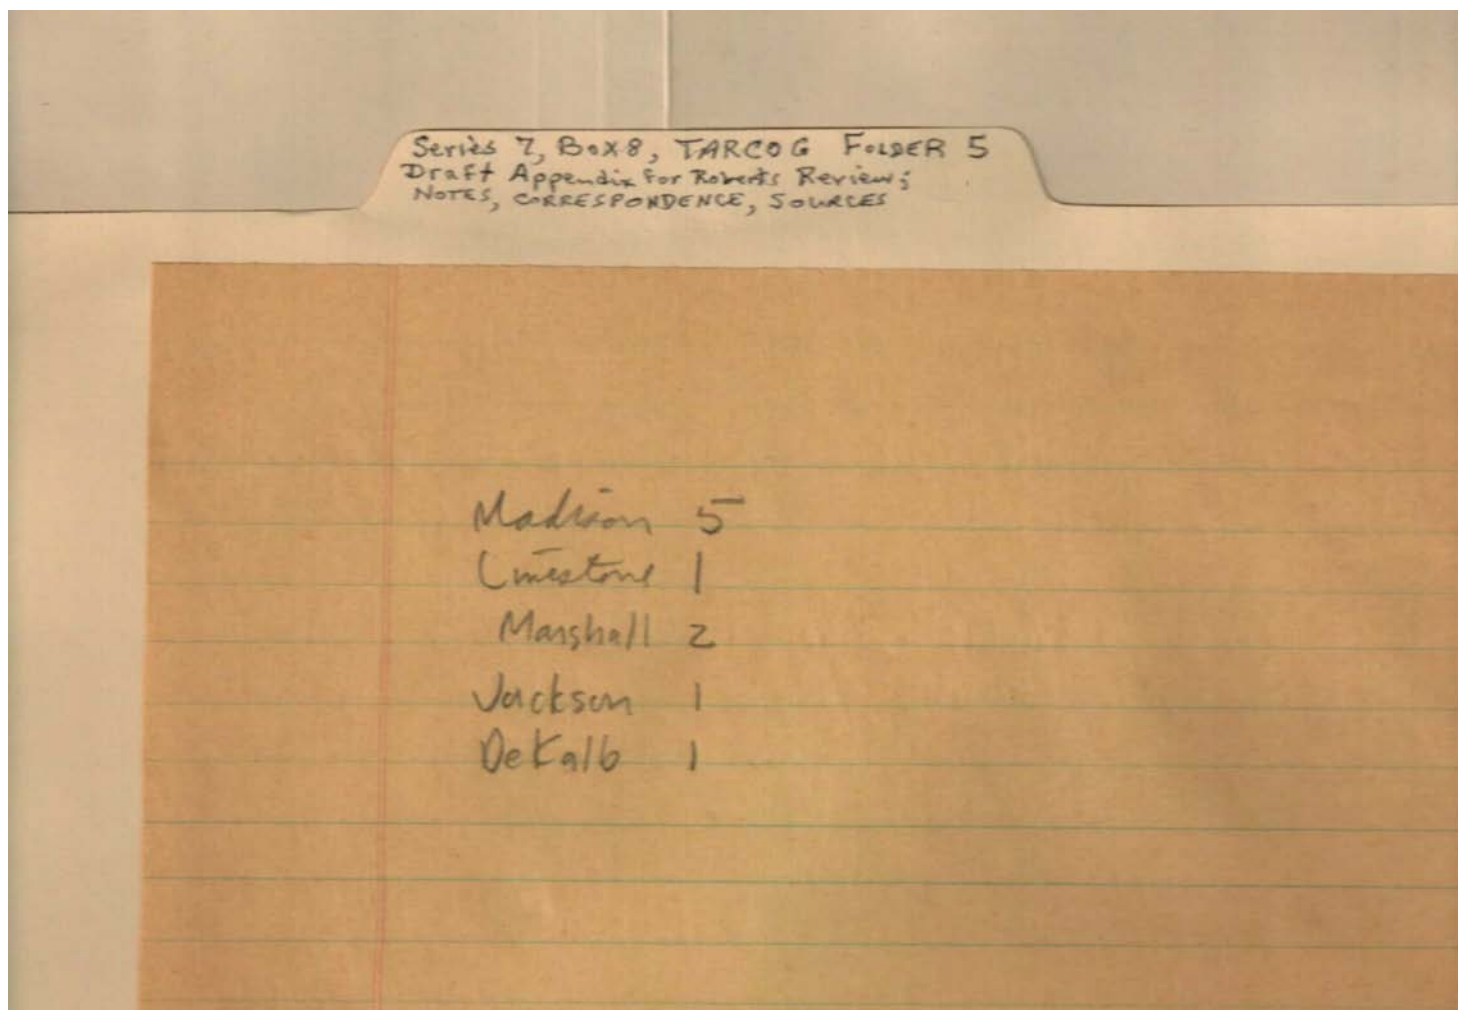 Series 7, Box 8, TARCOG FOLDER 5
Draft Appendix for Roberts Review;
NOTES, CORRESPONDENCE, SOURCES
Madison 5
Limestone 1
Marshall 2
Jackson 1
DeKalb 1